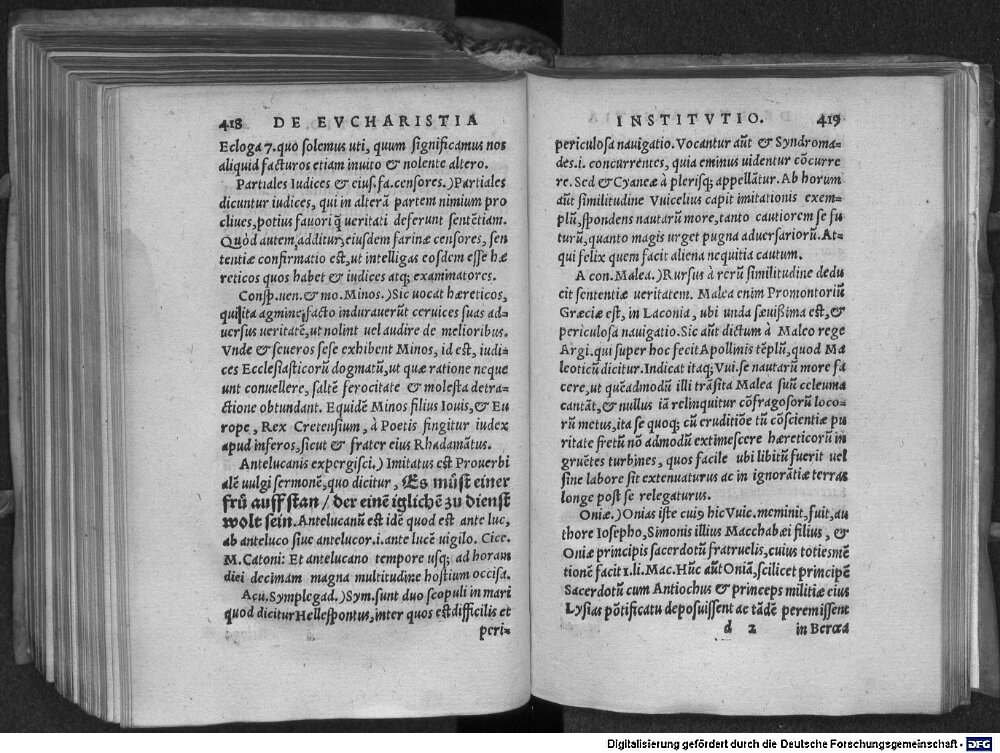 418 DE EVCHARISTIA
Ecloga 7. quo solemus uti, quum significamus nos
aliquid facturos etiam inuito & nolente altero.
Partiales Iudices & eius. fa. censores.) Partiales
dicuntur iudices, qui in alterā partem nimium pro
cliues, potius fauori q̄ ueritati deferunt sentētiam.
Quòd autem additur, eiusdem farinæ censores, sen
tentiæ confirmatio est, ut intelligas eosdem esse hæ
reticos quos habet & iudices atq; examinatores.
Consp. uen. & mo. Minos.) Sic uocat hæreticos,
qui ita agmine facto indurauerūt ceruices suas ad-
uersus ueritatē, ut nolint uel audire de melioribus.
Vnde & seueros sese exhibent Minos, id est, iudi-
ces Ecclesiasticorū dogmatū, ut quæ ratione neque
unt conuellere, saltē ferocitate & molesta detra-
ctione obtundant. Equidē Minos filius Iouis, & Eu
rope, Rex Cretensium, à Poetis fingitur iudex
apud inferos, sicut & frater eius Rhadamātus.
Antelucanis expergisci.) Imitatus est Prouerbi
alē uulgi sermonē, quo dicitur, Es můst einer
frů auff stan / der einē iglichē zu dienst
wolt sein. Antelucanū est idē quod est ante luc,
ab anteluco siue antelucor. i. ante lucē uigilo. Cice.
M. Catoni: Et antelucano tempore usq; ad horam
diei decimam magna multitudine hostium occisa.
Acu. Symplegad.) Sym. sunt duo scopuli in mari
quod dicitur Hellespontus, inter quos est difficilis et
peri-
INSTITVTIO. 419
periculosa nauigatio. Vocantur aūt & Syndroma-
des. i. concurrentes, quia eminus uidentur cōcurre
re. Sed & Cyaneæ à plerisq; appellātur. Ab horum
aūt similitudine Vuicelius capit imitationis exem-
plū, spondens nautarū more, tanto cautiorem se fu
turū, quanto magis urget pugna aduersariorū. At-
qui felix quem facit aliena nequitia cautum.
A con. Malea.) Rursus à rerū similitudine dedu
cit sententiæ ueritatem. Malea enim Promontoriū
Græciæ est, in Laconia, ubi unda sæuißima est, &
periculosa nauigatio. Sic aūt dictum à Maleo rege
Argi. qui super hoc fecit Apollinis tēplū, quod Ma
leoticū dicitur. Indicat itaq; Vui. se nautarū more fa
cere, ut quēadmodū illi trāsita Malea suū celeuma
cantāt, & nullus iā relinquitur cōfragosorū loco-
rū metus, ita se quoq; cū eruditiōe tū cōscientiæ pu
ritate fretū nō admodū extimescere hæreticorū in
gruētes turbines, quos facile ubi libitū fuerit uel
sine labore sit extenuaturus ac in ignorātiæ terras
longe post se relegaturus.
Oniæ.) Onias iste cuiꝰ hic Vuic. meminit, fuit, au
thore Iosepho, Simonis illius Macchabæi filius, &
Oniæ principis sacerdotū fratruelis, cuius toties mē
tionē facit 1. li. Mac. Hūc aūt Oniā, scilicet principē
Sacerdotū cum Antiochus & princeps militiæ eius
Lysias pōtificatu deposuissent ac tādē peremissent
d 2 in Berœa